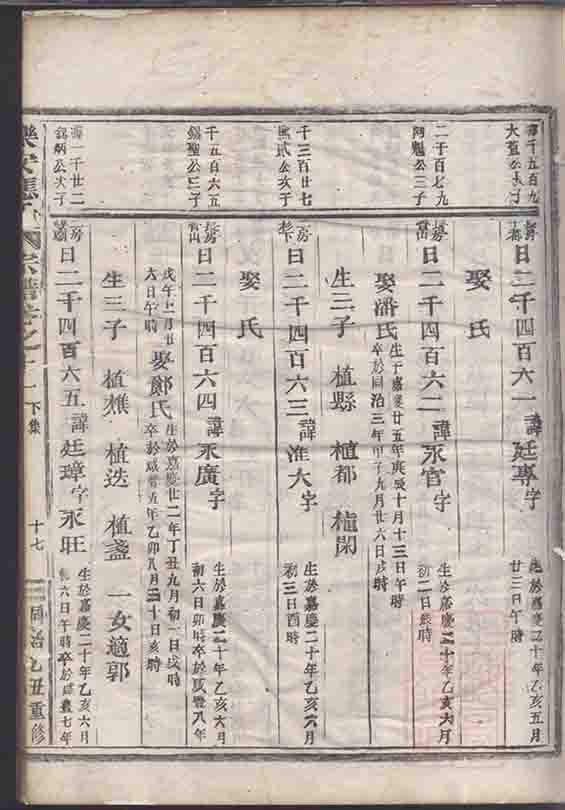 二千五百九
大
房
都
日二千四百六一 諱廷專字
生於嘉慶二十年乙亥五月
廿三日午時
娶 氏
二千百七九
阿魁公三子
房
日二千四百六二 諱永官字
生於嘉慶二十年乙亥六月
初二日 時
娶潘氏
生于嘉慶廿五年庚 十月十三日午時
卒於同治三年甲子九月廿六日戌時
生三子 植縣 植都 植閑
千三百廿七
公次子
房
日二千四百六三 諱淮大字
生於嘉慶二十年乙亥六月
初三日酉時
娶 氏
千五百六五
錫聖公三子
房
日二千四百六四 諱永廣字
生於嘉慶二十年乙亥六月
初六日卯時卒於咸豐八年
戊午 月廿
六日午時
娶鄭氏
生於嘉慶廿二年丁丑九月初一日戌時
卒於咸豐五年乙卯八月三十日亥時
生三子 植樵 植迭 植盞 一女適郭
一千廿二
錫炳公次子
房
日二千四百六五 諱廷璋字永旺
生於嘉慶二十年乙亥六月
初六日午時卒於咸豐七年
宗譜卷之十一 下集 十七 同治乙丑重修